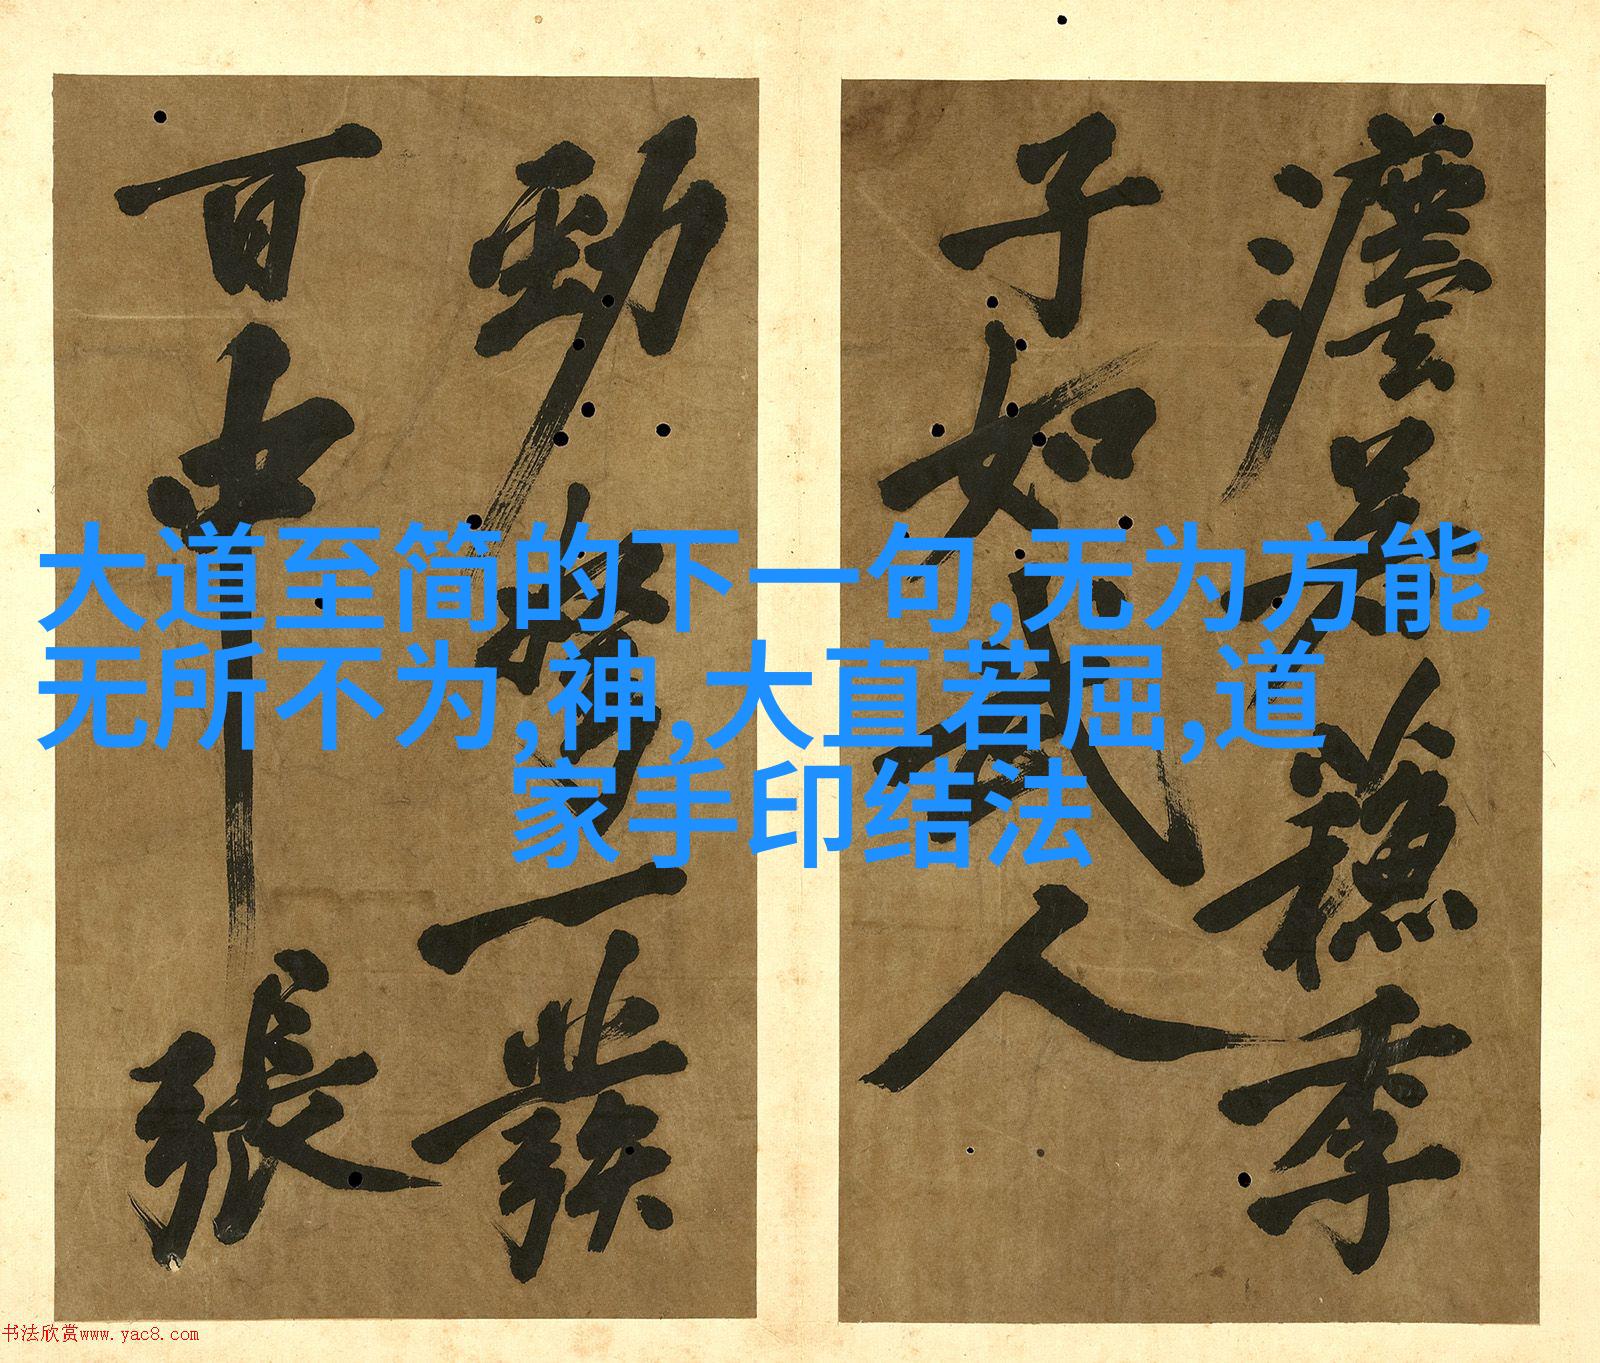 大道至简的下一句,无为方能
无所不为,神,大直若屈,道
家手印结法
季
子如武人
勁 一發
百中張
书法欣赏www.yac8.com